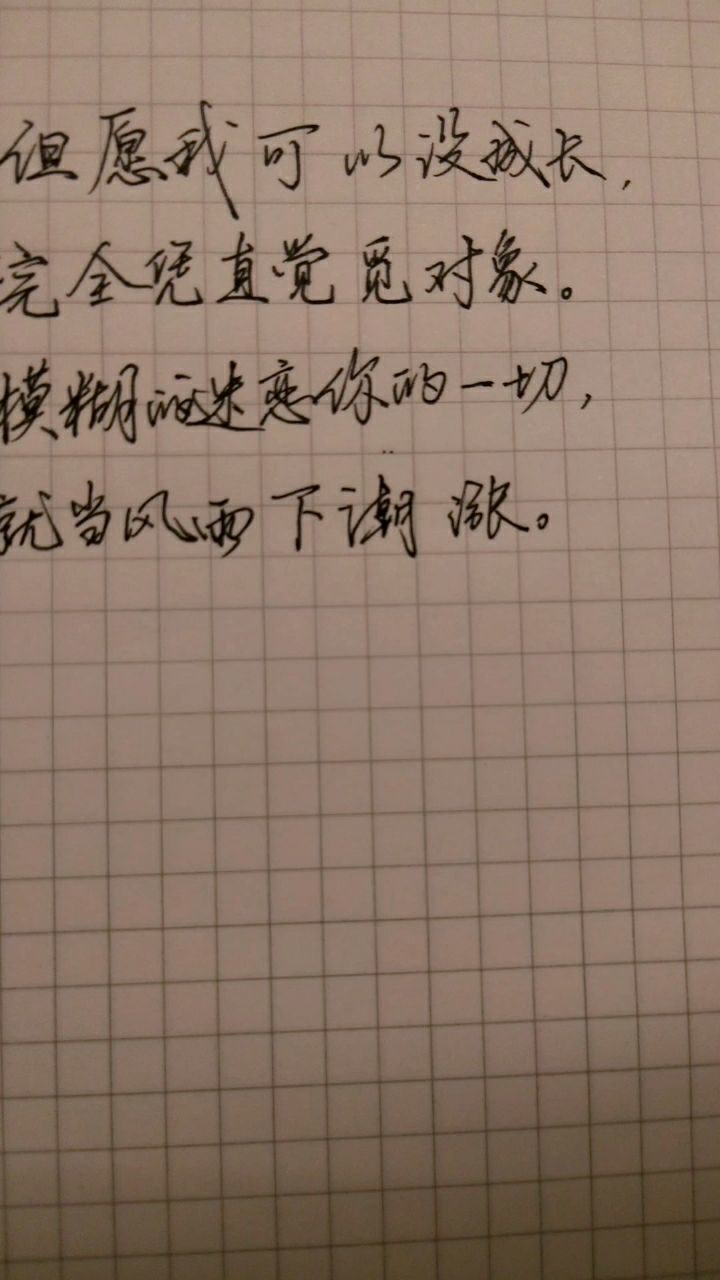 但愿我可以没成长，
完全凭直觉觅对象。
模糊的迷恋你的一切，
就当风雨下潮涨。